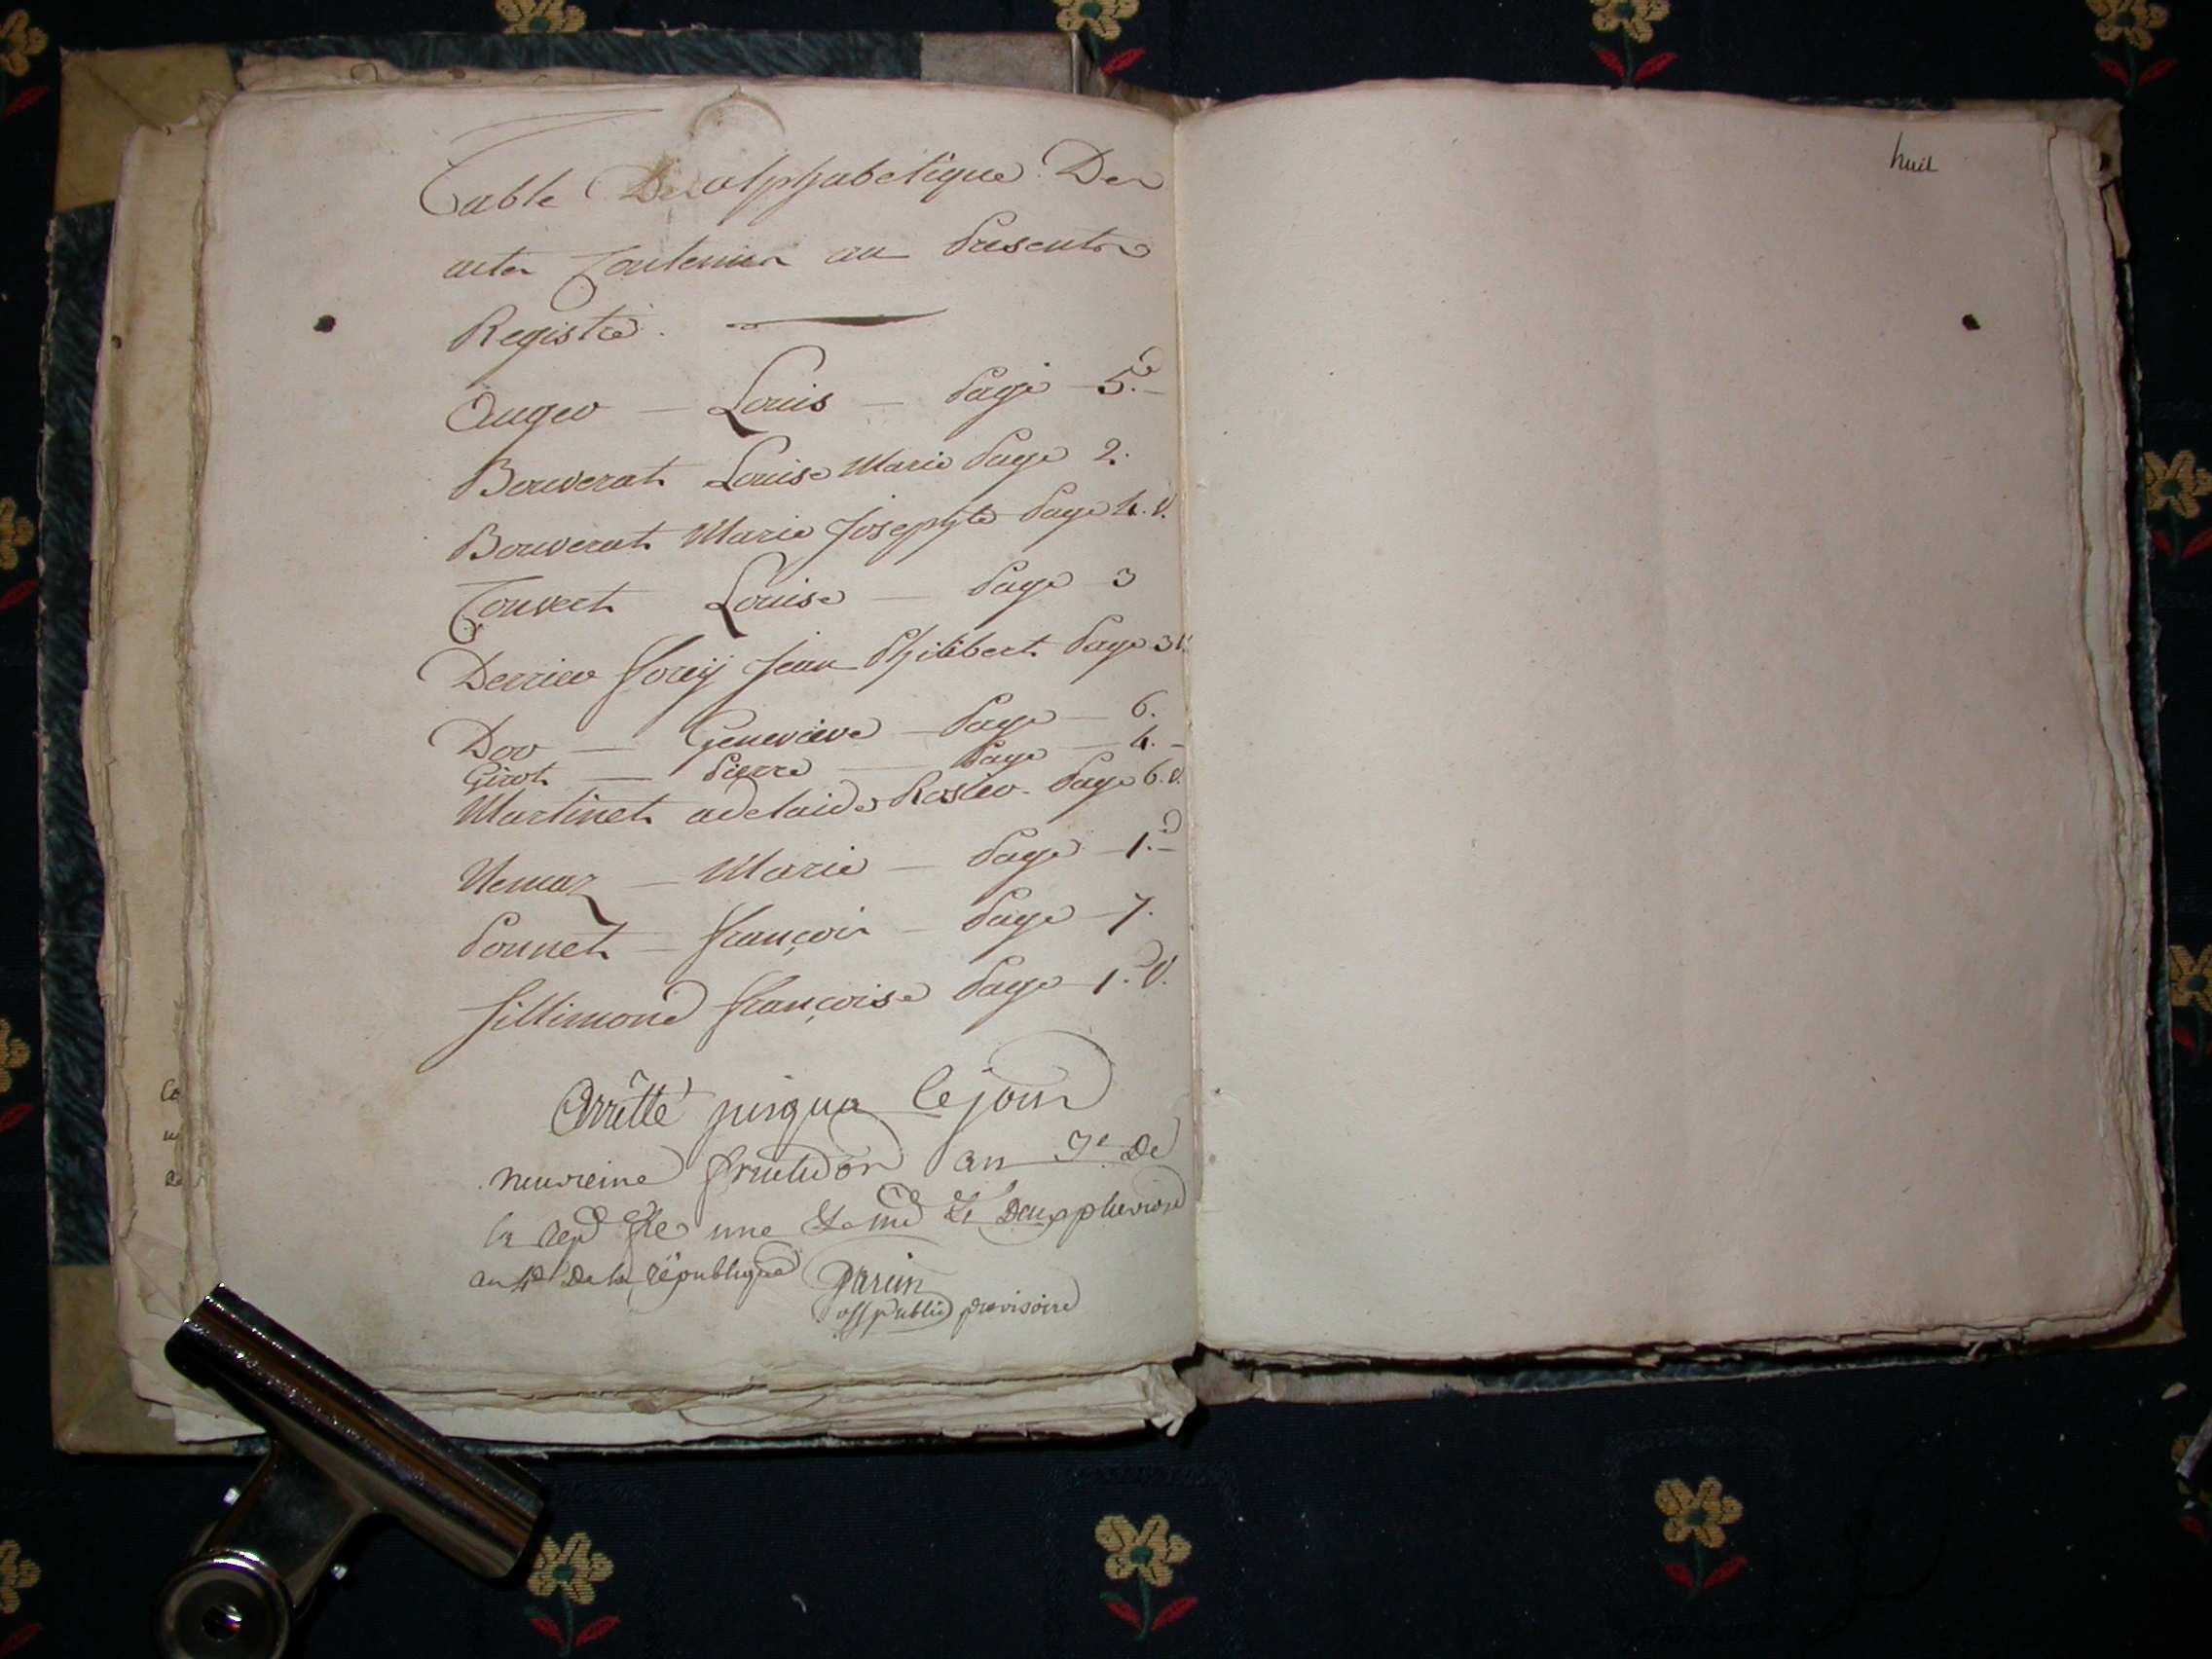 Table alphabetique Des
actes Contenus au present
Registre.
Auger — Louis — page 5.e
Bouverat Louise Marie page 2.
Bouverat Marie Josephte page 4. v.
Convert Louise — page 3
Perrier forey Jean Philibert page 3 v.
Doo — Genevieve — page — 6.
Girot — pierre — page — 4. —
Martinet adelaide page 6. v.
Nemoz — Marie — page 1.
ponnet — françois — page 7.
fillimond françoise page 1. v.
Arrêtté jusqua ce jour
fructidor an 3e De
la Rep une
an 4e De la république
off public provisoire
huit